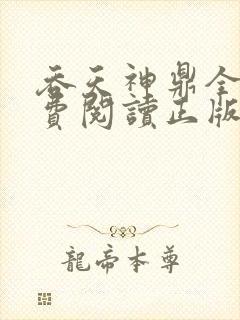 吞天神鼎全
費閱讀正版
龍帝本尊